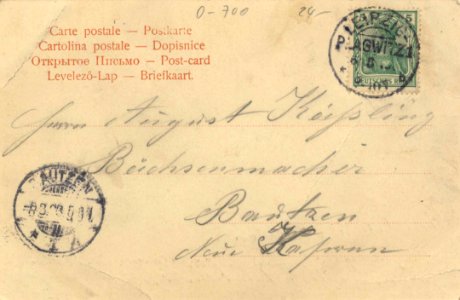 0-700 24-
Carte postale — Postkarte
Cartolina postale — Dopisnice
Открытое Письмо — Post-card
Levelező-Lap — Briefkaart.
LEIPZIG-
PLAGWITZ 1
Herrn August Käßling
Büchsenmacher
Bautzen
Neue Kasernen
BAUTZEN